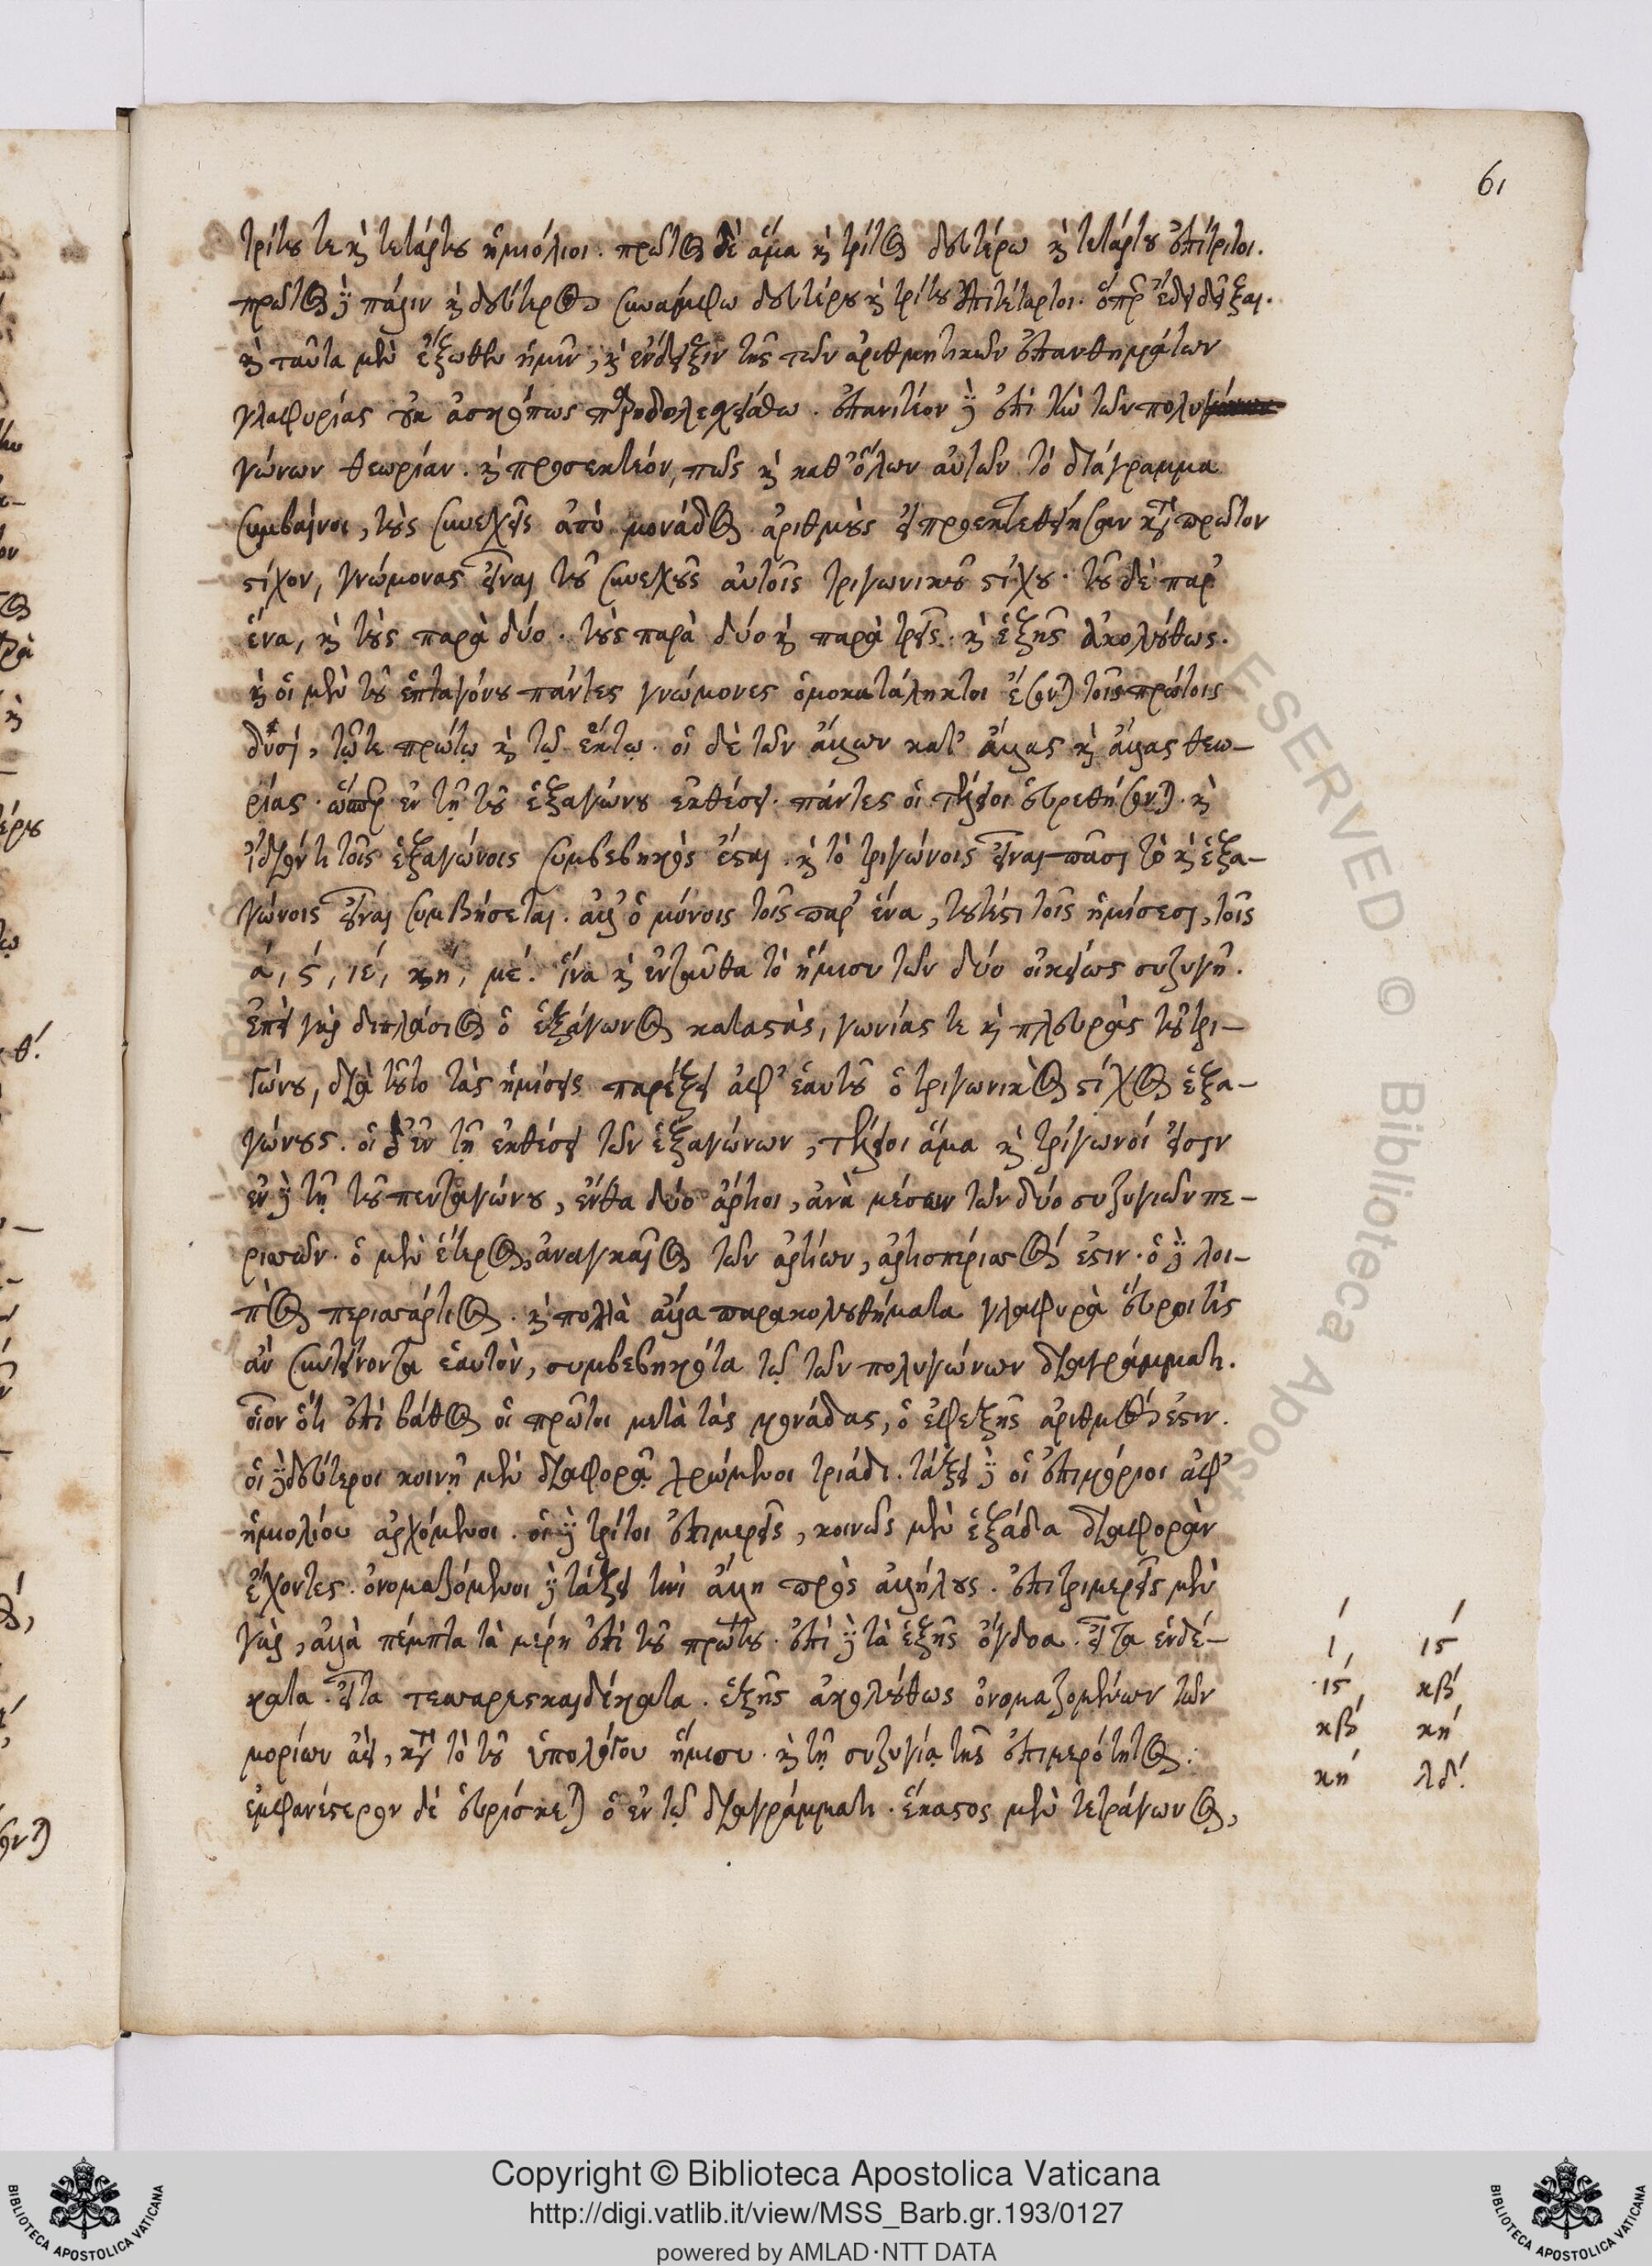 61
τρίτου τε καὶ τετάρτου ἡμιόλιοι. πρῶτος δὲ ἅμα καὶ τρίτος δευτέρω καὶ τετάρτου ἐπίτριτοι.
πρῶτος δὲ πάλιν καὶ δεύτερος συναμφω δευτέρου καὶ τρίτου ἐπιτέταρτοι. ὅπερ ἔδει δεῖξαι.
καὶ ταῦτα μὲν ἔξωθεν ἡμῖν, καὶ ἔνδειξιν τῆς τῶν ἀριθμητικῶν ἐπανθημάτων
γλαφυρίας οὐκ ἀσκόπως. ἐπανιτέον δὲ ἐπὶ τὴν τῶν πολυ
γώνων θεωρίαν. καὶ προσεκτεόν, πῶς καὶ καθ' ὅλων αὐτῶν τὸ διάγραμμα
συμβαίνοι, τοὺς συνεχεῖς ἀπὸ μονάδος ἀριθμοὺς εἰ προεκτεθείησαν κατὰ πρῶτον
στίχον, γνώμονας εἶναι τοῦ συνεχοῦς αὐτοῖς τριγωνικοῦ στίχου. τοῦ δὲ παρ'
ἕνα, καὶ τοὺς παρὰ δύο. τοὺς παρὰ δύο καὶ παρὰ τρεῖς. καὶ ἑξῆς ἀκολούθως.
καὶ οἱ μὲν τοῦ ἑπταγόνου πάντες γνώμονες ὁμοκατάληκτοι ἔσονται τοῖς πρώτοις
δυσί, τῷ τε πρώτῳ καὶ τῷ ἕκτῳ. οἱ δὲ τῶν ἄλλων κατ' ἄλλας καὶ ἄλλας θεω-
ρίας. ὥσπερ ἐν τῇ τοῦ ἑξαγώνου ἐκθέσει. πάντες οἱ τέλειοι εὑρεθήσονται. καὶ
ἴδιόν τι τοῖς ἑξαγώνοις συμβεβηκὸς ἔσται. καὶ τὸ τριγώνοις εἶναι πᾶσι τὸ καὶ ἑξα-
γώνοις εἶναι συμβήσεται. ἀλλ' ὁ μόνοις τοῖς παρ' ἕνα, τουτέστι τοῖς ἡμίσεσι, τοῖς
α΄, ς΄, ιε΄, κη΄, με΄. ἵνα καὶ ἐνταῦθα τὸ ἥμισυ τῶν δύο οἰκείως συζυγῇ.
ἐπεὶ γὰρ διπλάσιος ὁ ἑξάγωνος καταστὰς, γωνίας τε καὶ πλευρὰς τοῦ τρι-
γώνου, διὰ τοῦτο τὰς ἡμίσεις παρέξει ἀφ' ἑαυτοῦ ὁ τριγωνικὸς στίχος ἑξα-
γώνους. οἱ δ' ἐν τῇ ἐκθέσει τῶν ἑξαγώνων, τέλειοι ἅμα καὶ τρίγωνοί εἰσιν
ἐν δὲ τῇ τοῦ πενταγώνου, ἔνθα δύο ἄρτιοι, ἀνὰ μέσον τῶν δύο συζυγιῶν πε-
ρισσῶν. ὁ μὲν ἕτερος, ἀναγκαῖος τῶν ἀρτίων, ἀρτιοπέρισσός ἐστιν. ὁ δὲ λοι-
πὸς περισσάρτιος. καὶ πολλὰ ἄλλα παρακολουθήματα γλαφυρὰ εὕροι τις
ἂν συντείνοντα ἑαυτὸν, συμβεβηκότα τῷ τῶν πολυγώνων διαγράμματι.
οἷον ὅτι ἐπὶ βάθος οἱ πρῶτοι μετὰ τὰς μονάδας, ὁ ἐφεξῆς ἀριθμός ἐστιν.
οἱ δὲ δεύτεροι κοινῇ μὲν διαφορᾷ χρώμενοι τριάδι. τάξει δὲ οἱ ἐπιμόριοι ἀφ'
ἡμιολίου ἀρχόμενοι. οἱ δὲ τρίτοι ἐπιμερεῖς, κοινῶς μὲν ἑξάδα διαφορὰν
ἔχοντες. ὀνομαζόμενοι δὲ τάξει τινὶ ἄλλη πρὸς ἀλλήλους. ἐπιτριμερεῖς μὲν
γὰρ, ἀλλὰ πέμπτα τὰ μέρη ἐπὶ τοῦ πρώτου. ἐπὶ δὲ τὰ ἑξῆς ὄγδοα. εἶτα ἑνδέ-
κατα. εἶτα τεσσαρεσκαιδέκατα. ἑξῆς ἀκολούθως ὀνομαζομένων τῶν
μορίων ἀεὶ, κατὰ τὸ τοῦ ὑπολόγου ἥμισυ. καὶ τῇ συζυγίᾳ τῆς ἐπιμερότητος.
ἐμφανέστερον δὲ εὑρίσκεται ὁ ἐν τῷ διαγράμματι. ἕκαστος μὲν τετράγωνος,
ι΄ ις΄
ις΄ κβ΄
κβ΄ κη΄
κη΄ λδ΄.
Copyright © Biblioteca Apostolica Vaticana
http://digi.vatlib.it/view/MSS_Barb.gr.193/0127
powered by AMLAD·NTT DATA
BIBLIOTECA APOSTOLICA VATICANA
BIBLIOTECA APOSTOLICA VATICANA